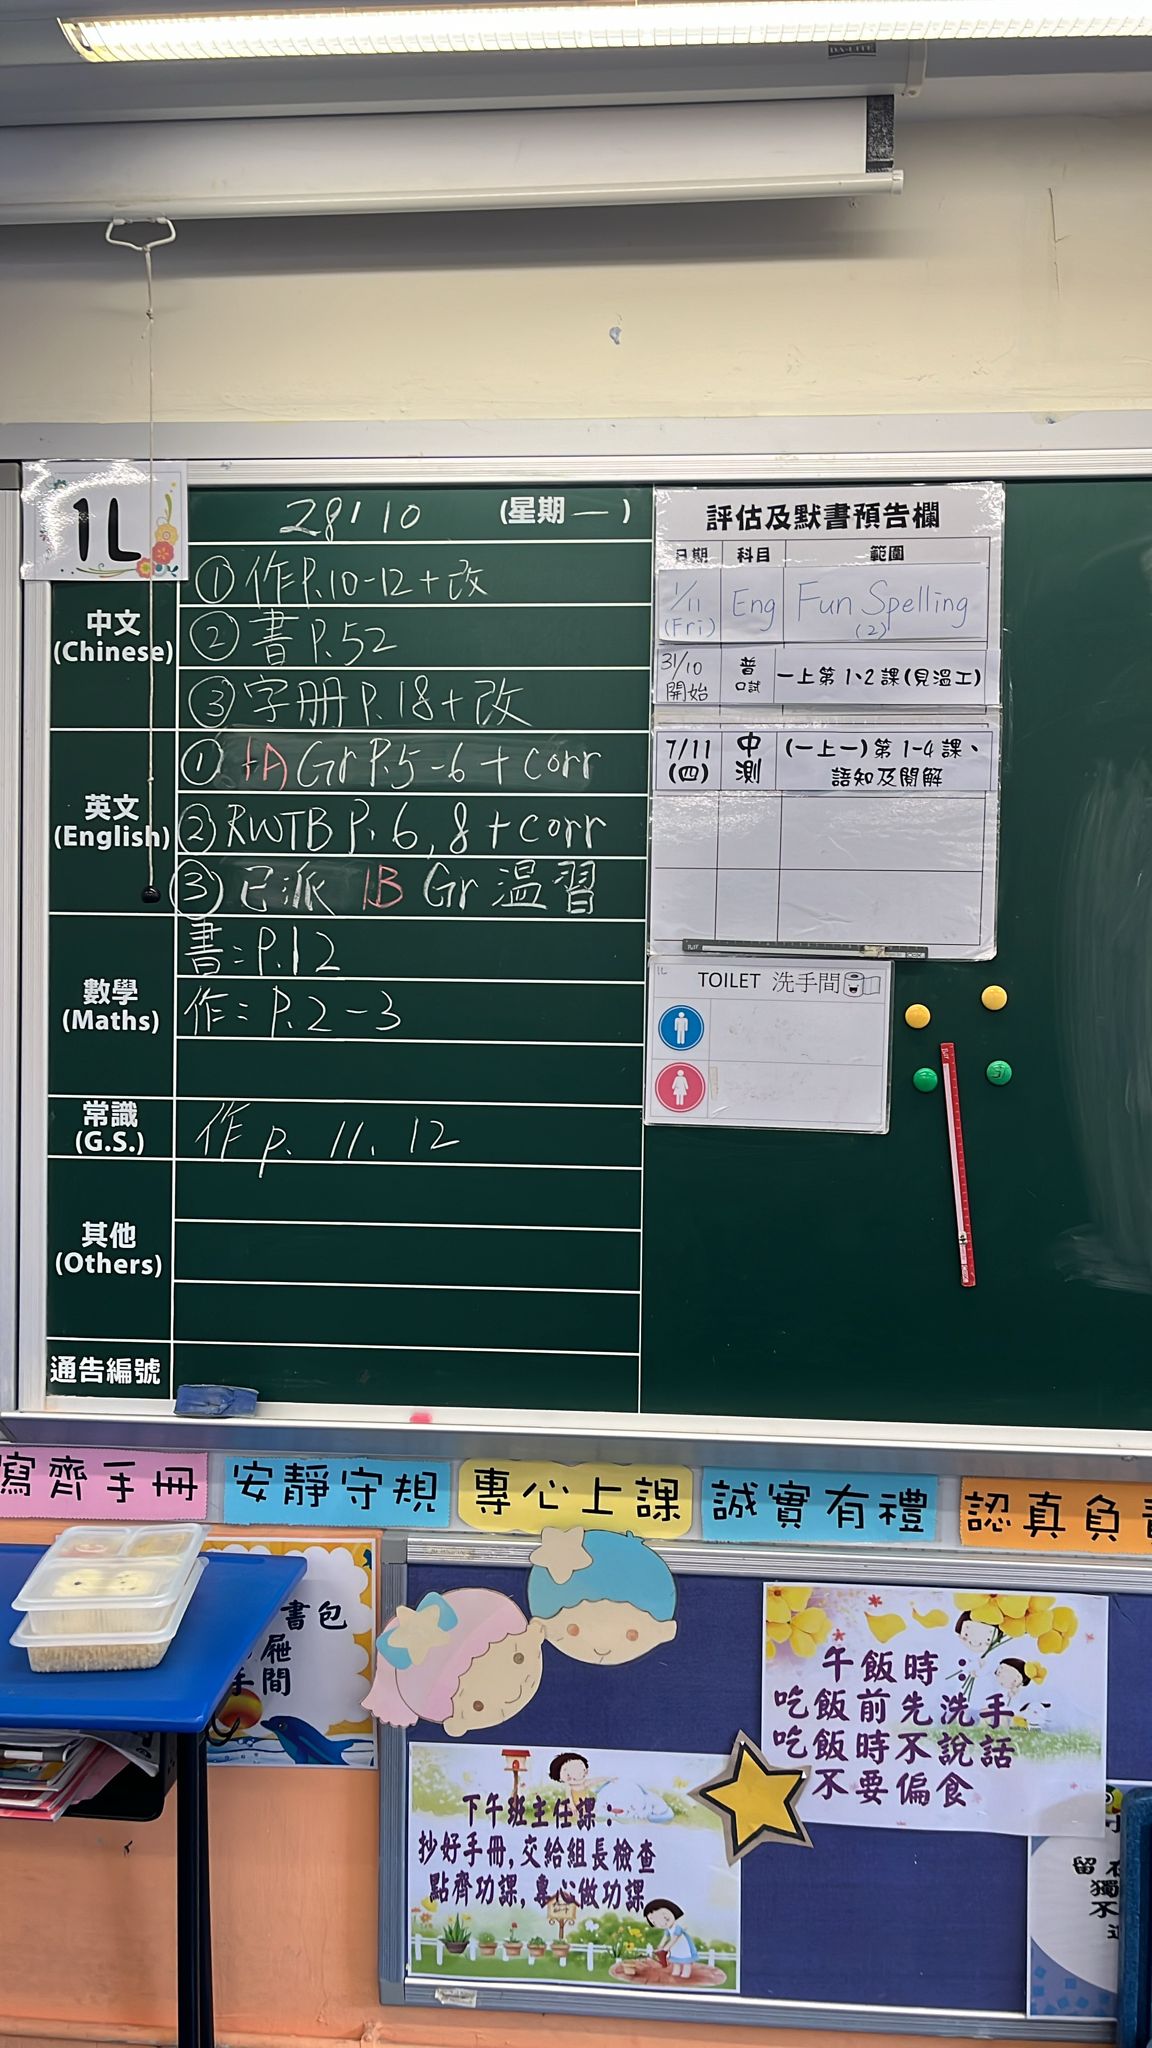 DA-LITE
1L
28/10 (星期一)
中文
(Chinese)
① 作P.10-12+改
② 書P.52
③ 字册P.18+改
英文
(English)
① 1A Gr P.5-6 + corr
② RWTB P. 6, 8 + corr
③ 已派 1B Gr 温習
數學
(Maths)
書: P.12
作: P.2-3
常識
(G.S.)
作 p. 11. 12
其他
(Others)
通告編號
評估及默書預告欄
日期 科目 範圍
1/11 (Fri) Eng Fun Spelling (2)
31/10 開始 普 口試 一上第1、2課(見溫工)
7/11 (四) 中測 (一上一)第1-4課、
語知及閱解
1L
TOILET 洗手間
寫齊手冊
安靜守規
專心上課
誠實有禮
認真負
書包
屜
手間
午飯時:
吃飯前先洗手
吃飯時不說話
不要偏食
下午班主任課:
抄好手冊,交給組長檢查
點齊功課,專心做功課
留
獨
不